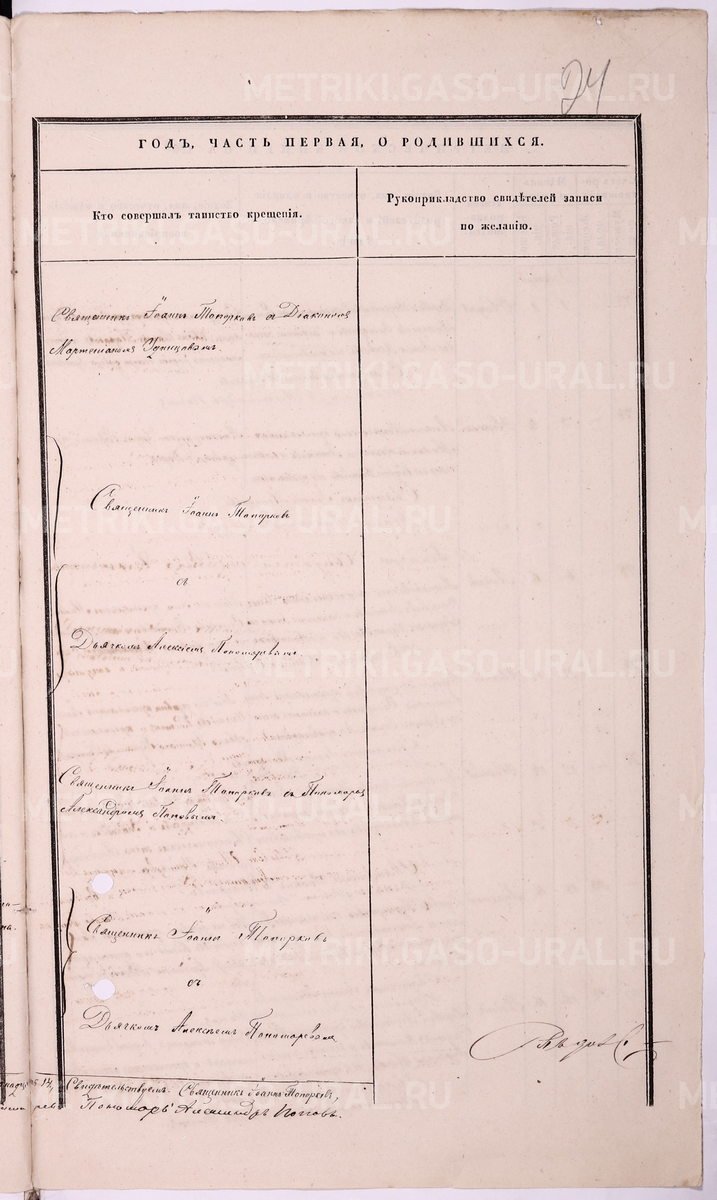 24
ГОДЪ, ЧАСТЬ ПЕРВАЯ, О РОДИВШИХСЯ.
Кто совершалъ таинство крещенія.
Рукоприкладство свидѣтелей записи
по желанію.
Священникъ Іоаннъ Топорковъ съ Діакономъ
Мартиніаномъ
Священникъ Іоаннъ Топорковъ
съ
Дьячкомъ Алексіемъ Пономаревымъ
Священникъ Іоаннъ Топорковъ съ Пономаремъ
Александромъ Поповымъ.
Священникъ Іоаннъ Топорковъ
съ
Дьячкомъ Алексѣемъ Пономаревымъ
Свидѣтельствуемъ: Священникъ Іоаннъ Топорковъ,
Пономарь Александръ Поповъ.
METRIKI.GASO-URAL.RU